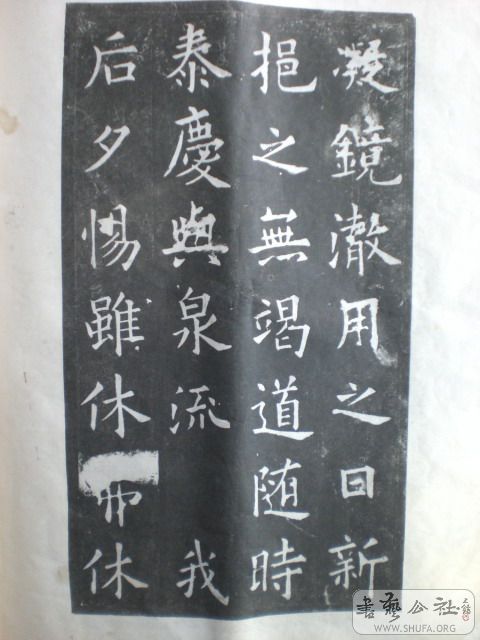 凝鏡澈用之日新
挹之無竭道随時
泰慶與泉流 我
后夕惕雖休弗休
書藝公社
WWW.SHUFA.ORG